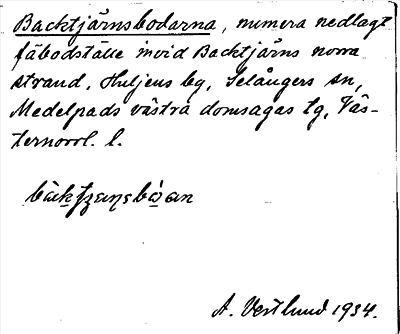 Backtjärnsbodarna, numera nedlagt
fäbodställe invid Backtjärns norra
strand, Huljens by, Selångers sn,
Medelpads västra domsagas tg, Väs-
ternorrl. l.
A. Vestlund 1934.